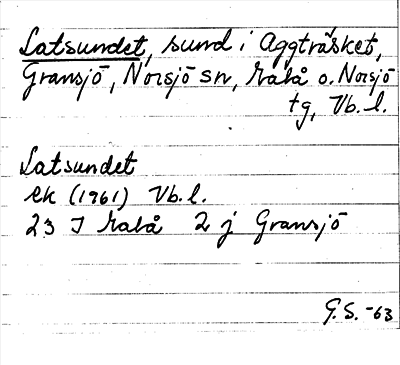 Latsundet, sund i Aggträsket,
Gransjö, Norsjö sn, Malå o. Norsjö
tg, Vb. l.
Latsundet
ek (1961) Vb. l.
23 J Malå 2 j Gransjö
G.S. -63